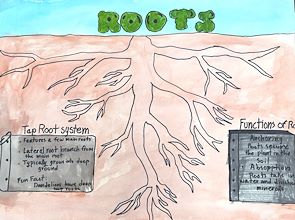 ROOTS
Tap Root system
- Features a few main roots
- Lateral root branch from
the main root
- Typically grows into deep
ground
Fun Fact:
Dandelions have deep
Functions of Ro
Anchoring
Roots secure
the plant in the
soil
Absorption
Roots take
water
minerals